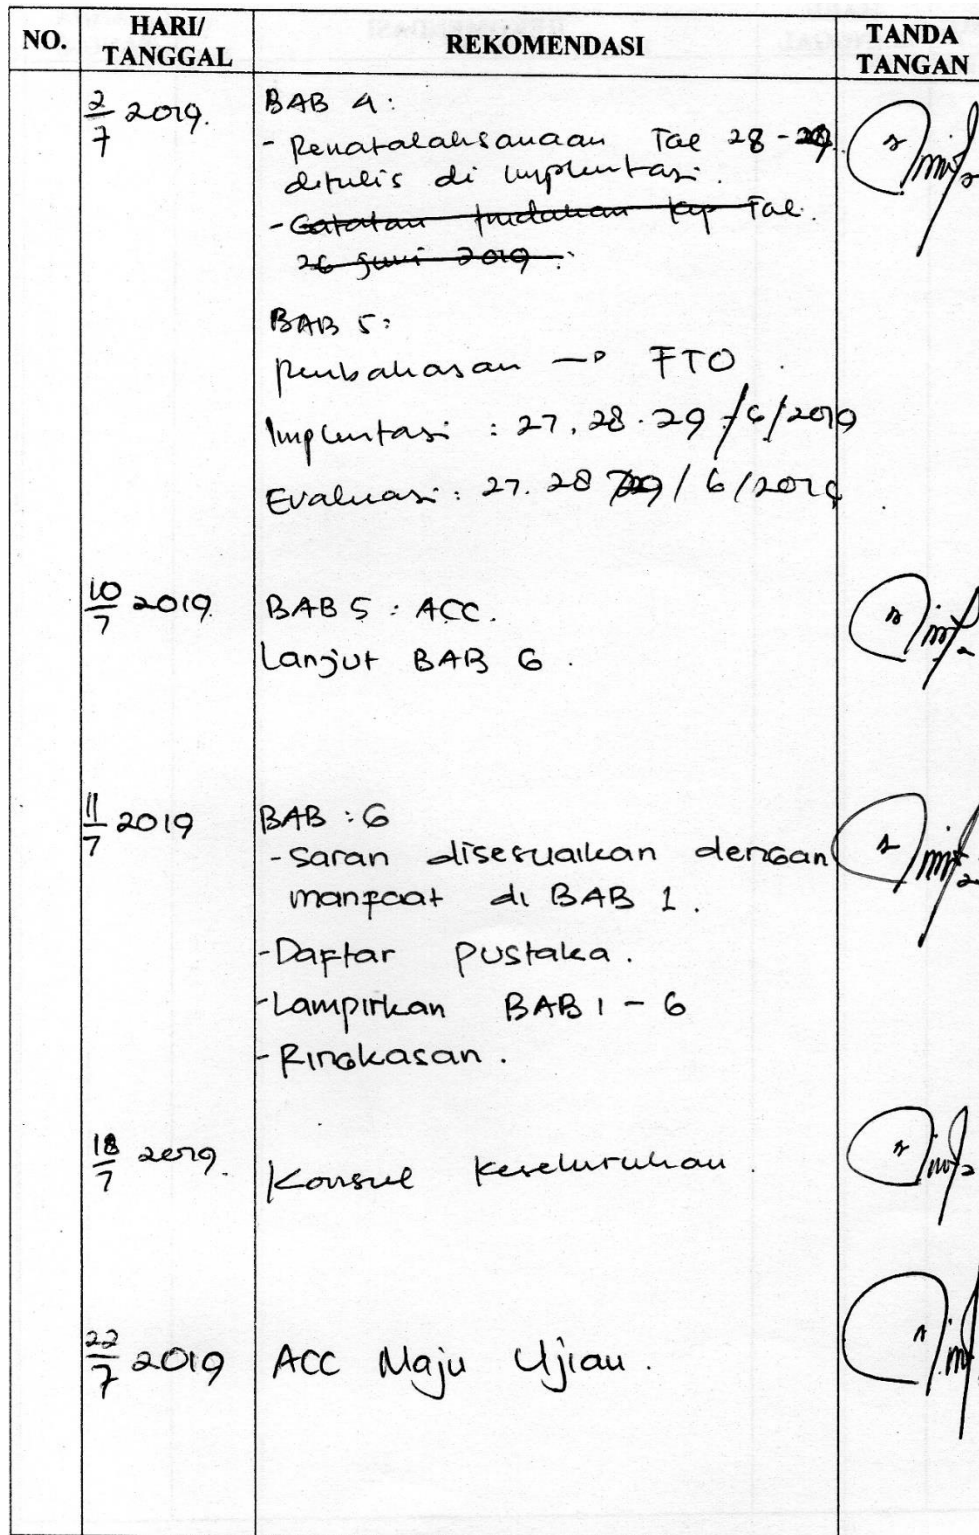 NO. HARI/ TANGGAL REKOMENDASI TANDA TANGAN
2/7 2019. BAB 4:
- Penatalaksanaan Tgl 28 - 29.
ditulis di implentasi.
- Catatan tindakan kep Tgl.
26 Juni 2019.
BAB 5:
Pembahasan → FTO.
Implentasi : 27, 28. 29 /6/2019
Evaluasi : 27. 28 29 / 6 /2019
10/7 2019. BAB 5 : ACC.
Lanjut BAB 6.
11/7 2019 BAB : 6
- Saran disesuaikan dengan
manfaat di BAB 1.
- Daftar Pustaka.
- Lampirkan BAB 1 - 6
- Ringkasan.
18/7 2019. Konsul keseluruhan.
22/7 2019 ACC Maju Ujian.